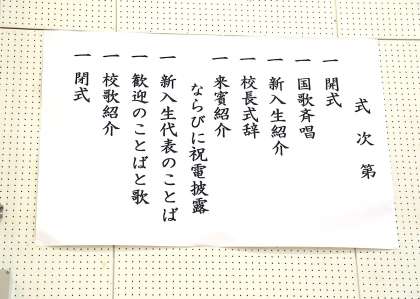 式次第
一 開式
一 国歌斉唱
一 新入生紹介
一 校長式辞
一 来賓紹介
ならびに祝電披露
一 新入生代表のことば
一 歓迎のことばと歌
一 校歌紹介
一 閉式